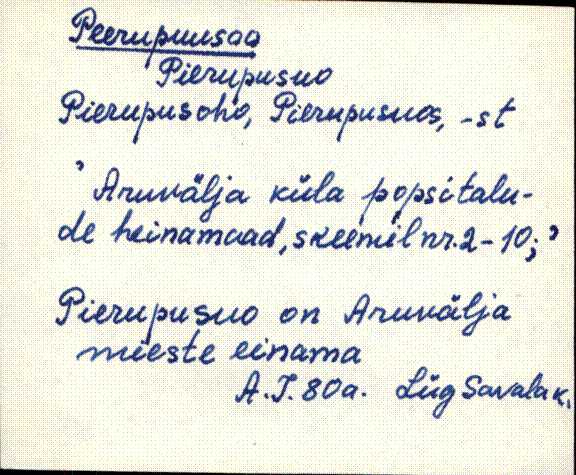 Peerupuusaa
Pierupusuo
Pierupusoho, Pierupusuos, -st
"Aruvälja küla popsitalu-
de heinamaad, skeemil nr. 2-10;"
Pierupusuo on Aruvälja
mieste einama
A.J. 80a. Lüg Savala k.